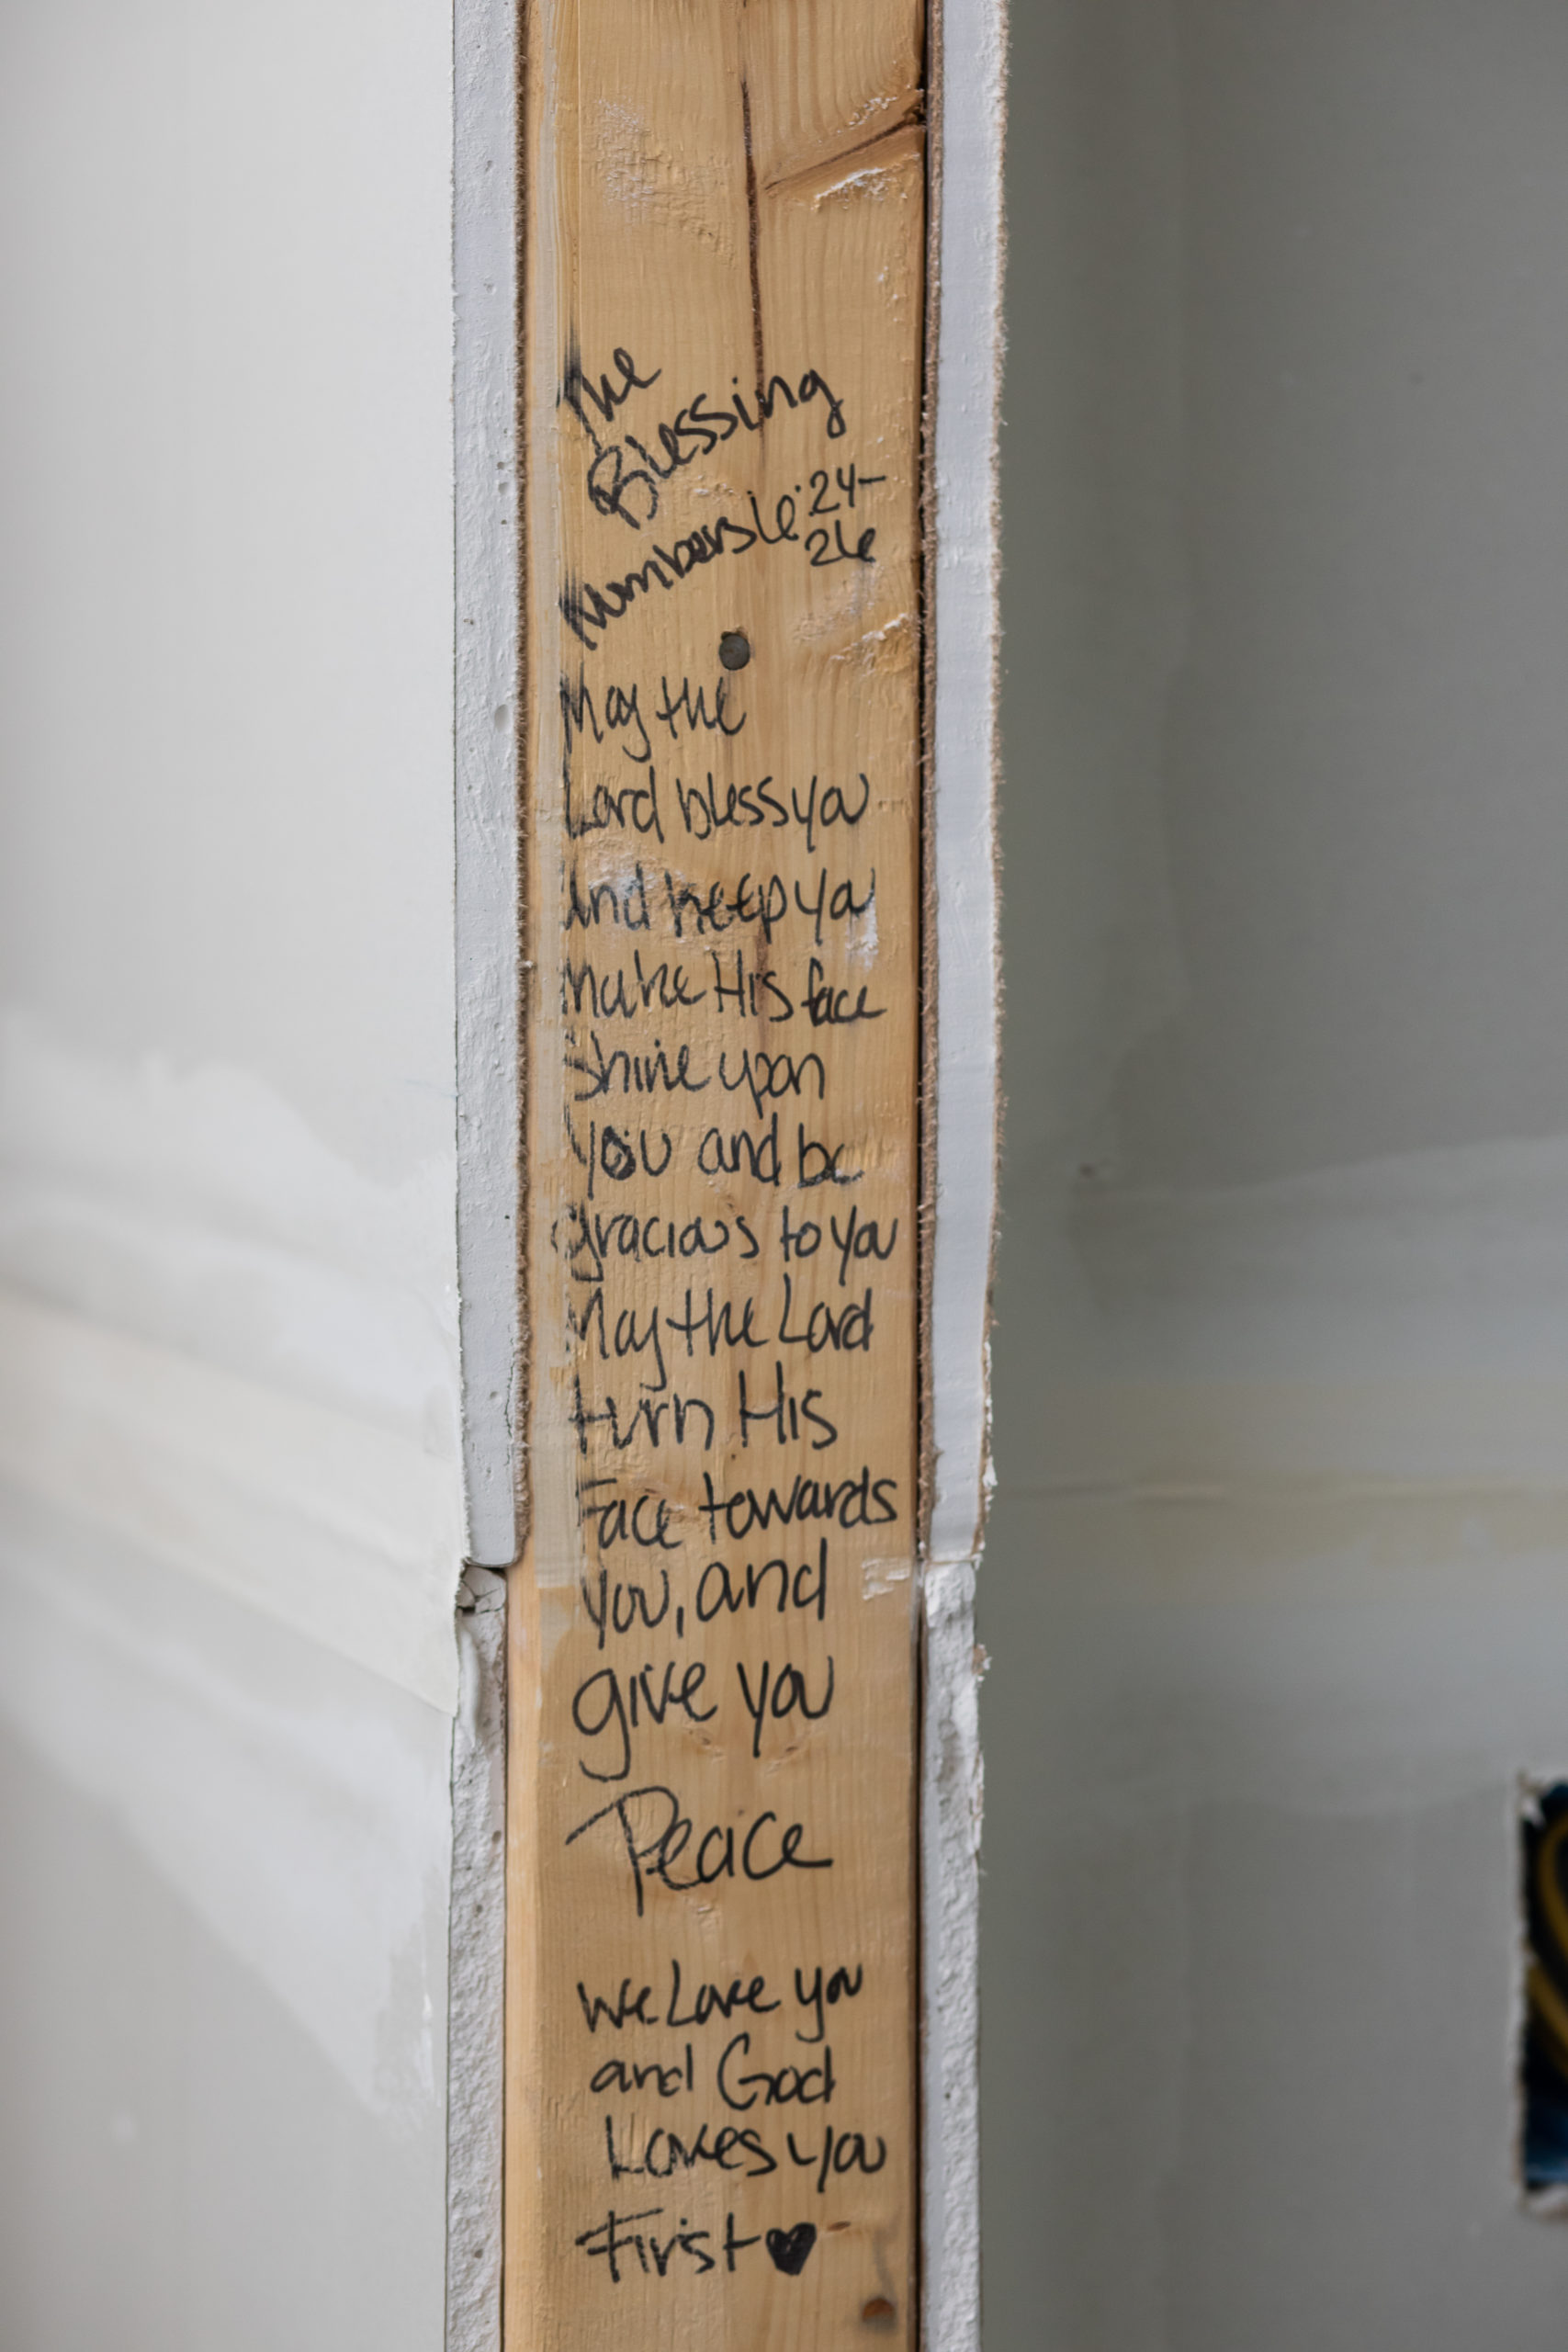 The
Blessing
Numbers 6:24-
26
May the
Lord bless you
and keep you
Make His face
Shine upon
you and be
gracious to you
May the Lord
turn His
Face towards
you, and
give you
Peace
We Love you
and God
Loves you
First ♥